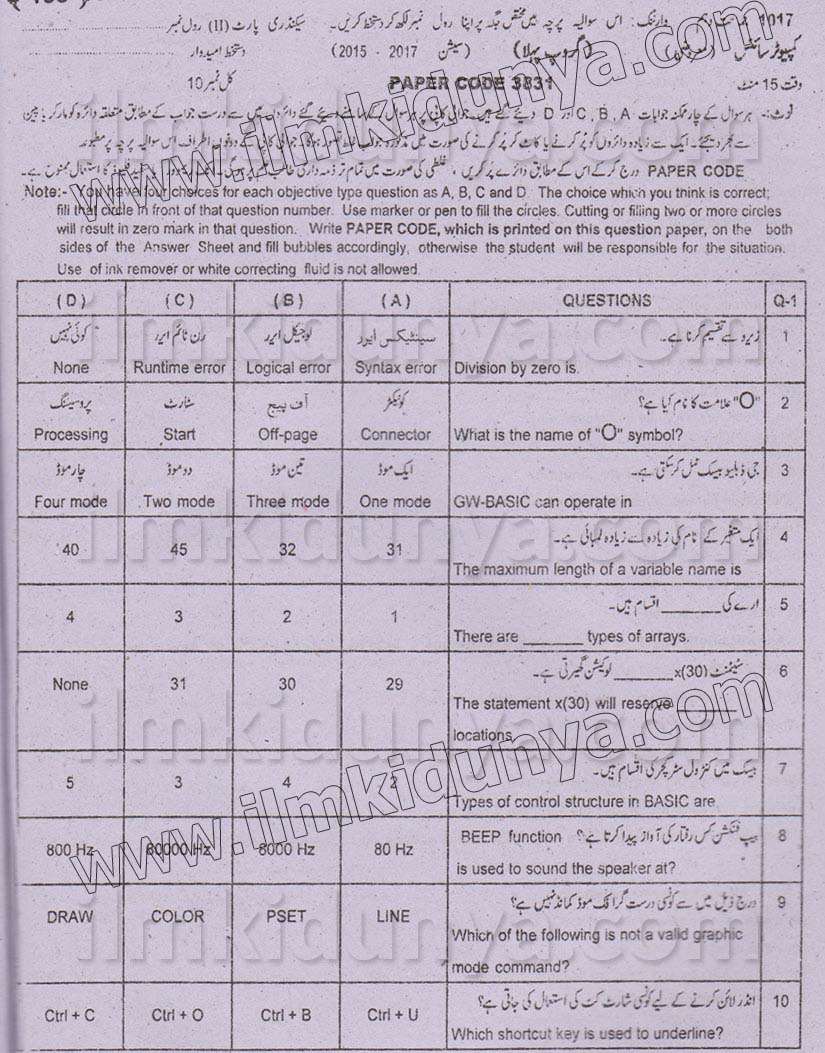 1017
وارننگ: اس سوالیہ پرچہ میں مختص جگہ پر اپنا رول نمبر لکھ کر دستخط کریں۔ سیکنڈری پارٹ (II) رول نمبر
کمپیوٹر سائنس (معروضی) (گروپ پہلا) (سیشن 2017 - 2015) دستخط امیدوار
وقت 15 منٹ PAPER CODE 3831 کل نمبر 10
نوٹ:- ہر سوال کے چار ممکنہ جوابات C, B, A اور D دیئے گئے ہیں۔ جوابی کاپی پر ہر سوال کے سامنے دیئے گئے دائروں میں سے درست جواب کے مطابق متعلقہ دائرہ کو مارکر یا پین
سے بھر دیجئے۔ ایک سے زیادہ دائروں کو پُر کرنے یا کاٹ کر پُر کرنے کی صورت میں مذکورہ جواب غلط تصور ہوگا۔ جوابی کاپی کے دونوں اطراف اس سوالیہ پرچہ پر مطبوعہ
PAPER CODE درج کر کے اس کے مطابق دائرے پُر کریں، غلطی کی صورت میں تمام تر ذمہ داری طالب علم پر ہوگی۔ کا استعمال ممنوع ہے۔
Note:- You have four choices for each objective type question as A, B, C and D The choice which you think is correct;
fill that circle in front of that question number. Use marker or pen to fill the circles. Cutting or filling two or more circles
will result in zero mark in that question. Write PAPER CODE, which is printed on this question paper, on the both
sides of the Answer Sheet and fill bubbles accordingly, otherwise the student will be responsible for the situation.
Use of ink remover or white correcting fluid is not allowed.
(D) (C) (B) (A) QUESTIONS Q-1
کوئی نہیں رن ٹائم ایرر لوجیکل ایرر سینٹیکس ایرر زیرو سے تقسیم کرنا ہے۔ 1
None Runtime error Logical error Syntax error Division by zero is.
پروسیسنگ سٹارٹ آف پیج کونیکٹر "O" علامت کا نام کیا ہے؟ 2
Processing Start Off-page Connector What is the name of "O" symbol?
چار موڈ دو موڈ تین موڈ ایک موڈ جی ڈبلیو بیسک عمل کر سکتی ہے۔ 3
Four mode Two mode Three mode One mode GW-BASIC can operate in
ایک متغیر کے نام کی زیادہ سے زیادہ لمبائی ہے۔ 4
40 45 32 31
The maximum length of a variable name is
ارے کی ______ اقسام ہیں۔ 5
4 3 2 1
There are ______ types of arrays.
سٹیٹمنٹ x(30) ______ لوکیشن گھیرتی ہے۔ 6
None 31 30 29
The statement x(30) will reserve ______
locations
بیسک میں کنٹرول سٹرکچر کی اقسام ہیں۔ 7
5 3 4 2
Types of control structure in BASIC are
BEEP function بیپ فنکشن کس رفتار کی آواز پیدا کرتا ہے؟ 8
800 Hz 80000 Hz 8000 Hz 80 Hz
is used to sound the speaker at?
درج ذیل میں سے کونسی درست گرافک موڈ کمانڈ نہیں ہے؟ 9
DRAW COLOR PSET LINE
Which of the following is not a valid graphic
mode command?
انڈر لائن کرنے کے لیے کونسی شارٹ کٹ کی استعمال کی جاتی ہے؟ 10
Ctrl + C Ctrl + O Ctrl + B Ctrl + U
Which shortcut key is used to underline?
www.ilmkidunya.com
www.ilmkidunya.com
ilmkidunya.com
ilmkidunya.com
ilmkidunya.com
ilmkidunya.com
ilmkidunya.com